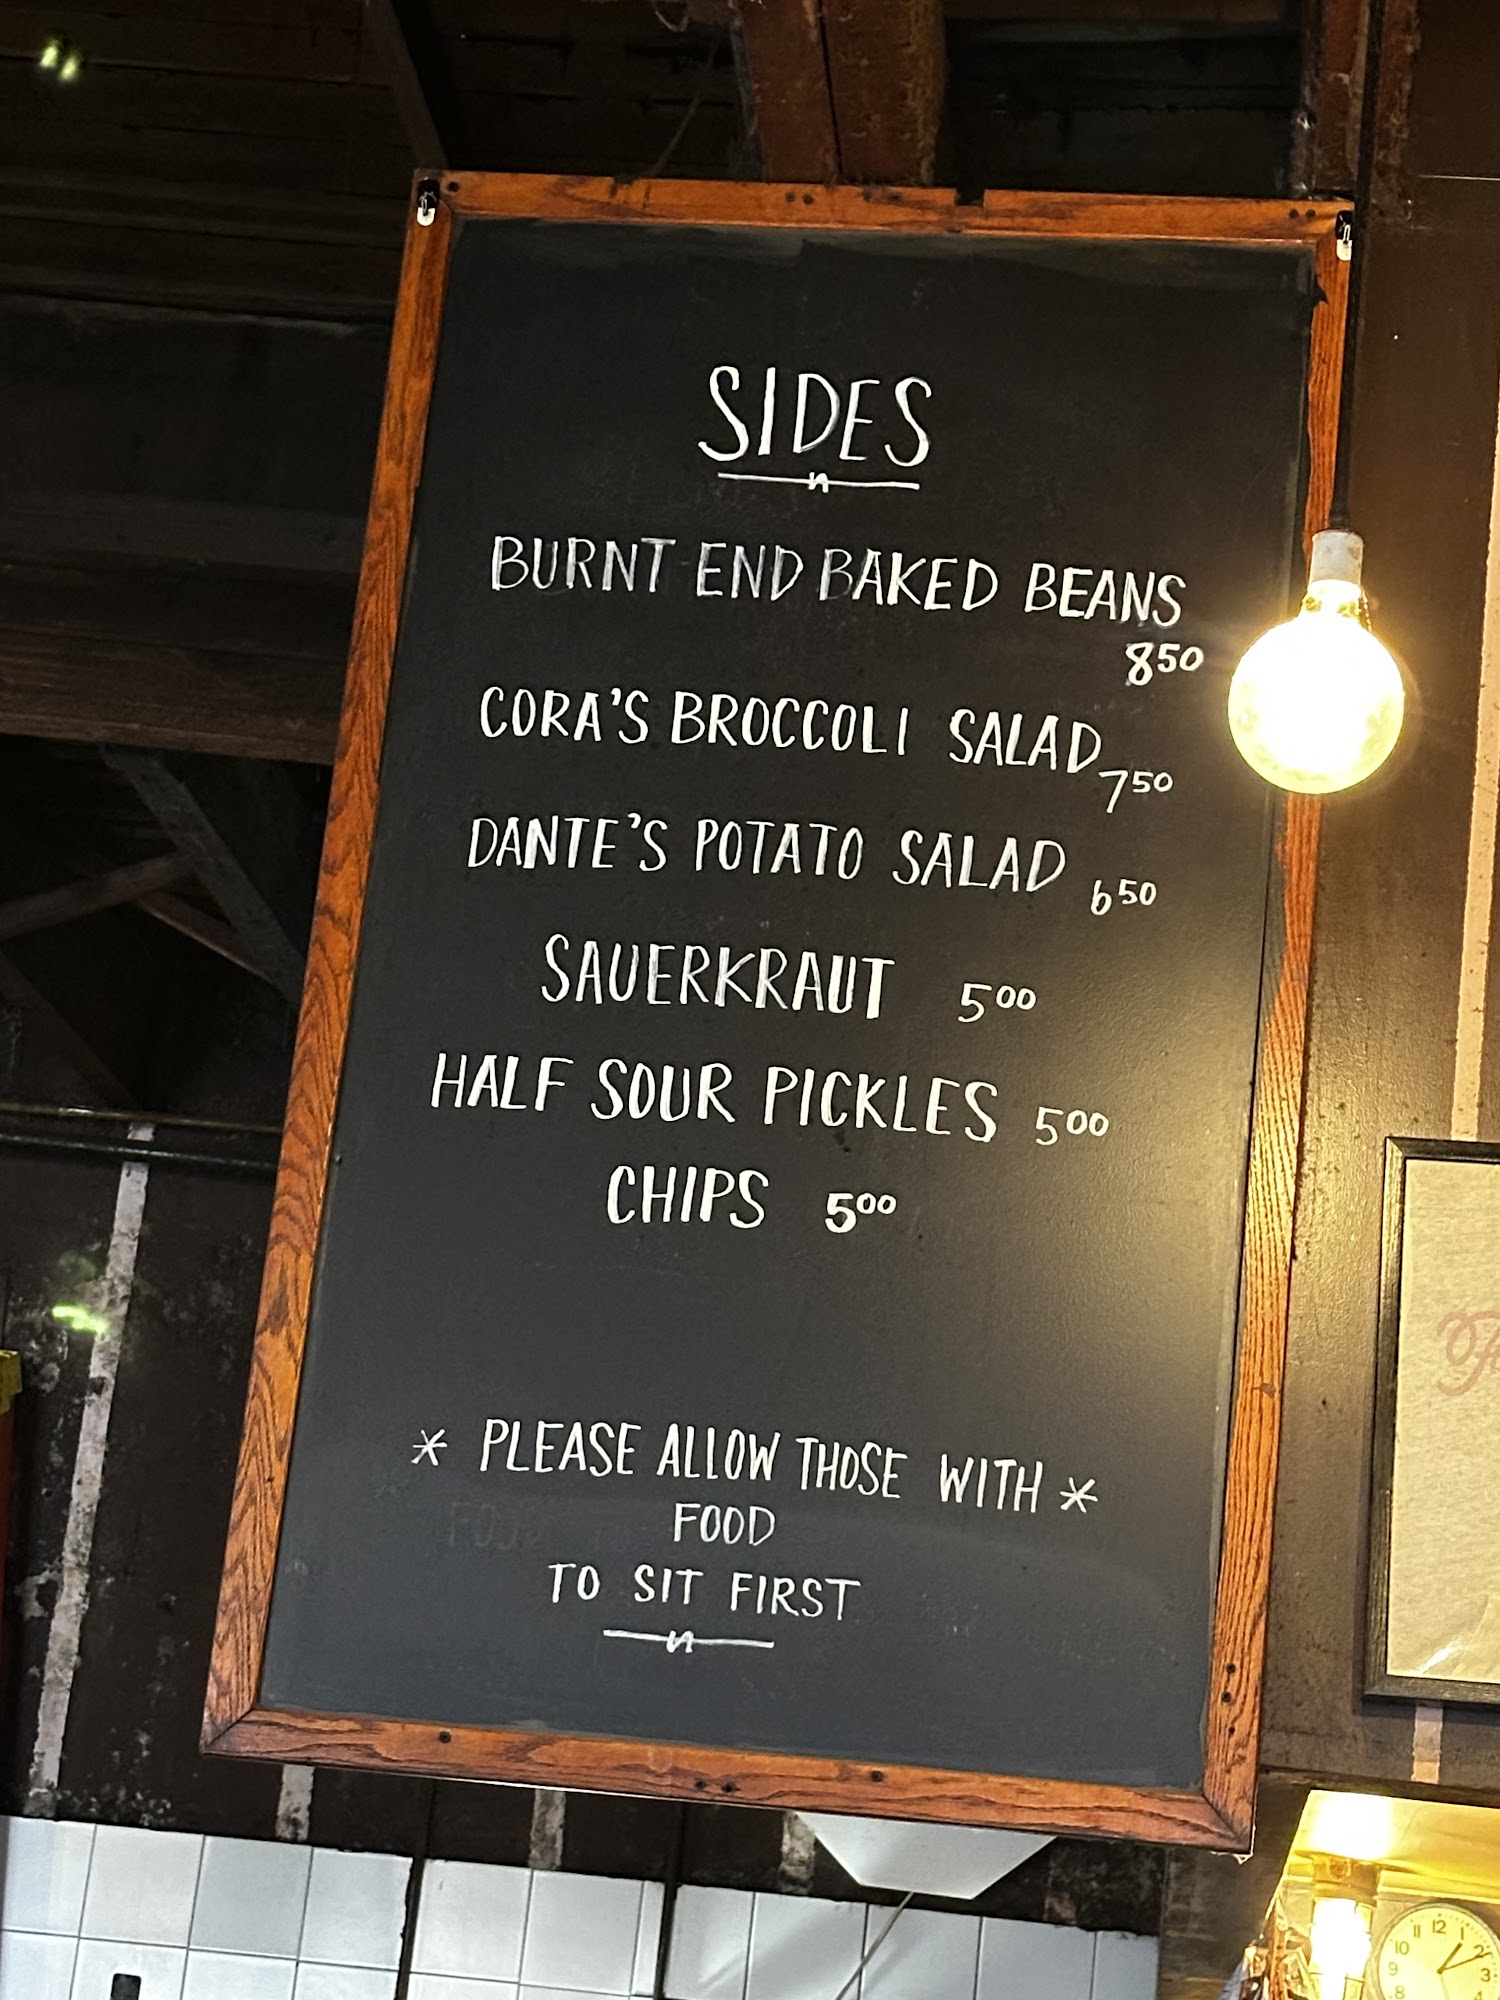 SIDES
BURNT END BAKED BEANS
850
CORA'S BROCCOLI SALAD 750
DANTE'S POTATO SALAD 650
SAUERKRAUT 500
HALF SOUR PICKLES 500
CHIPS 500
* PLEASE ALLOW THOSE WITH *
FOOD
TO SIT FIRST
11 12 1
10 2
9 3
8 4